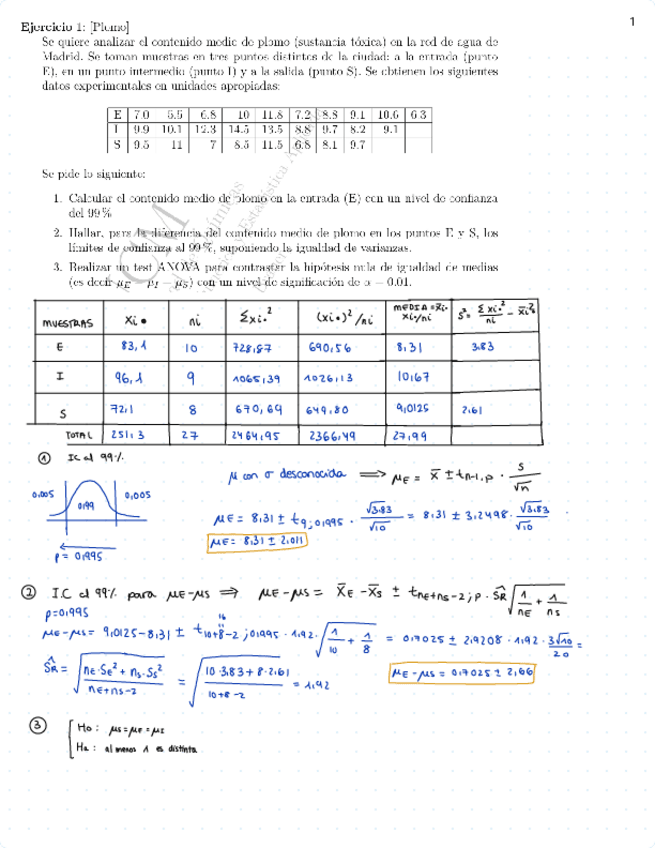 1
Ejercicio 1: [Plomo]
Se quiere analizar el contenido medio de plomo (sustancia tóxica) en la red de agua de
Madrid. Se toman muestras en tres puntos distintos de la ciudad: a la entrada (punto
E), en un punto intermedio (punto I) y a la salida (punto S). Se obtienen los siguientes
datos experimentales en unidades apropiadas:
E 7.0 5.5 6.8 10 11.8 7.2 8.8 9.1 10.6 6.3
I 9.9 10.1 12.3 14.5 13.5 8.8 9.7 8.2 9.1
S 9.5 11 7 8.5 11.5 6.8 8.1 9.7
Se pide lo siguiente:
1. Calcular el contenido medio de plomo en la entrada (E) con un nivel de confianza
del 99 %
2. Hallar, para la diferencia del contenido medio de plomo en los puntos E y S, los
límites de confianza al 99 %, suponiendo la igualdad de varianzas.
3. Realizar un test ANOVA para contrastar la hipótesis nula de igualdad de medias
(es decir μE = μI = μS) con un nivel de significación de α = 0.01.
MUESTRAS xi• ni Σxi•² (xi•)²/ni MEDIA = x̄i• xi•/ni S² = Σxi•²/ni - x̄i•²
E 83,1 10 728,87 690,56 8,31 3,83
I 96,1 9 1065,39 1026,13 10,67
S 72,1 8 670,69 649,80 9,0125 2,61
TOTAL 251,3 27 2464,95 2366,49 27,99
① IC al 99%
0,005 0,99 0,005
p = 0,995
μ con σ desconocida ⟹ μE = x̄ ± tn-1,p · S/√n
μE = 8,31 ± t9;0,995 · √3,83/√10 = 8,31 ± 3,2498 · √3,83/√10
μE = 8,31 ± 2,011
② I.C al 99% para μE-μS ⟹ μE-μS = x̄E - x̄S ± tnE+nS-2;p · ŜR √(1/nE + 1/nS)
p=0,995
16
μE-μS = 9,0125-8,31 ± t10+8-2;0,995 · 1,92 · √(1/10 + 1/8) = 0,7025 ± 2,9208 · 1,92 · 3√10/20 =
ŜR = √(nE·SE² + nS·SS²/nE+nS-2) = √(10·3,83 + 8·2,61/10+8-2) = 1,92
μE-μS = 0,7025 ± 2,66
③ H0: μS=μE=μI
Ha: al menos 1 es distinta